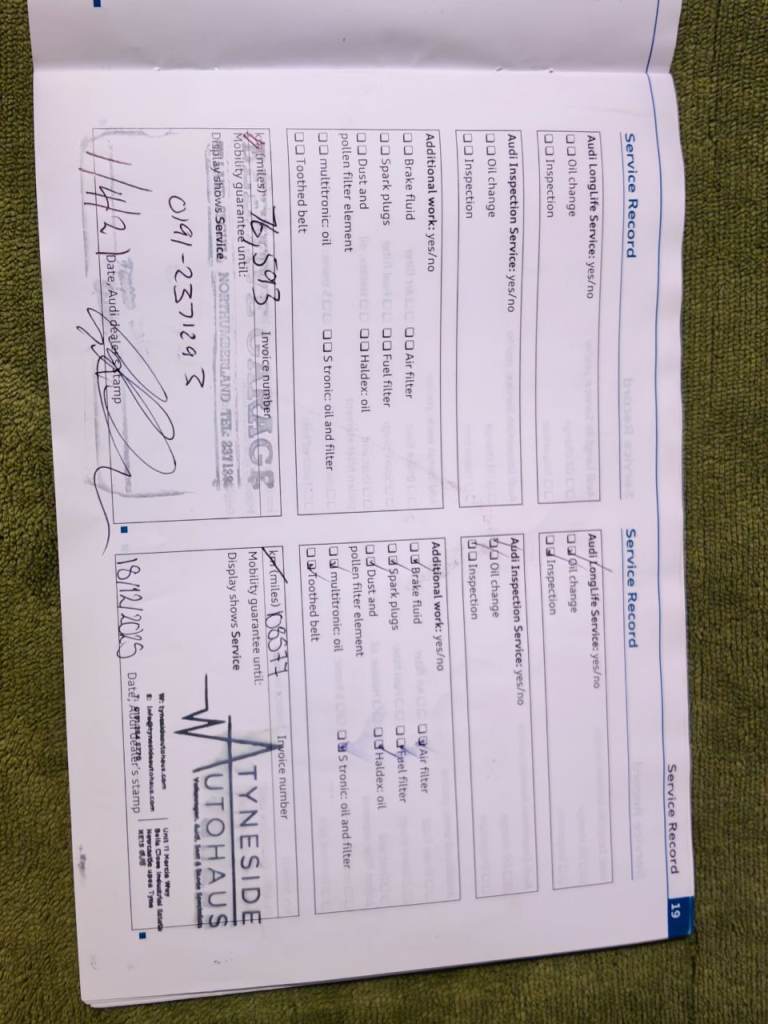 Service Record 19
Service Record
Audi LongLife Service: yes/no
Oil change
Inspection
Audi Inspection Service: yes/no
Oil change
Inspection
Additional work: yes/no
Brake fluid
Air filter
Spark plugs
Fuel filter
Dust and
pollen filter element
Haldex: oil
multitronic: oil
S tronic: oil and filter
Toothed belt
km (miles) 76,593 Invoice number
GARAGE
Mobility guarantee until:
Display shows Service
NORTHUMBERLAND TEL:
0191-2371293
1/4/21
Date, Audi dealer's stamp
Service Record
Audi LongLife Service: yes/no
Oil change
Inspection
Audi Inspection Service: yes/no
Oil change
Inspection
Additional work: yes/no
Brake fluid
Air filter
Spark plugs
Fuel filter
Dust and
pollen filter element
Haldex: oil
multitronic: oil
S tronic: oil and filter
Toothed belt
km (miles) 108577 Invoice number
Mobility guarantee until:
Display shows Service
TYNESIDE
AUTOHAUS
Volkswagen, Audi, Seat & Skoda Specialists
W: tynesideautohaus.com
E: info@tynesideautohaus.com
Unit 11 Mercia Way
Bells Close Industrial Estate
Newcastle upon Tyne
18/12/2025
Date, Audi dealer's stamp